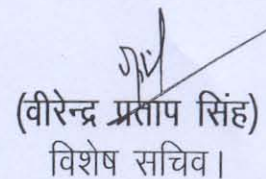 (वीरेन्द्र प्रताप सिंह)
विशेष सचिव।